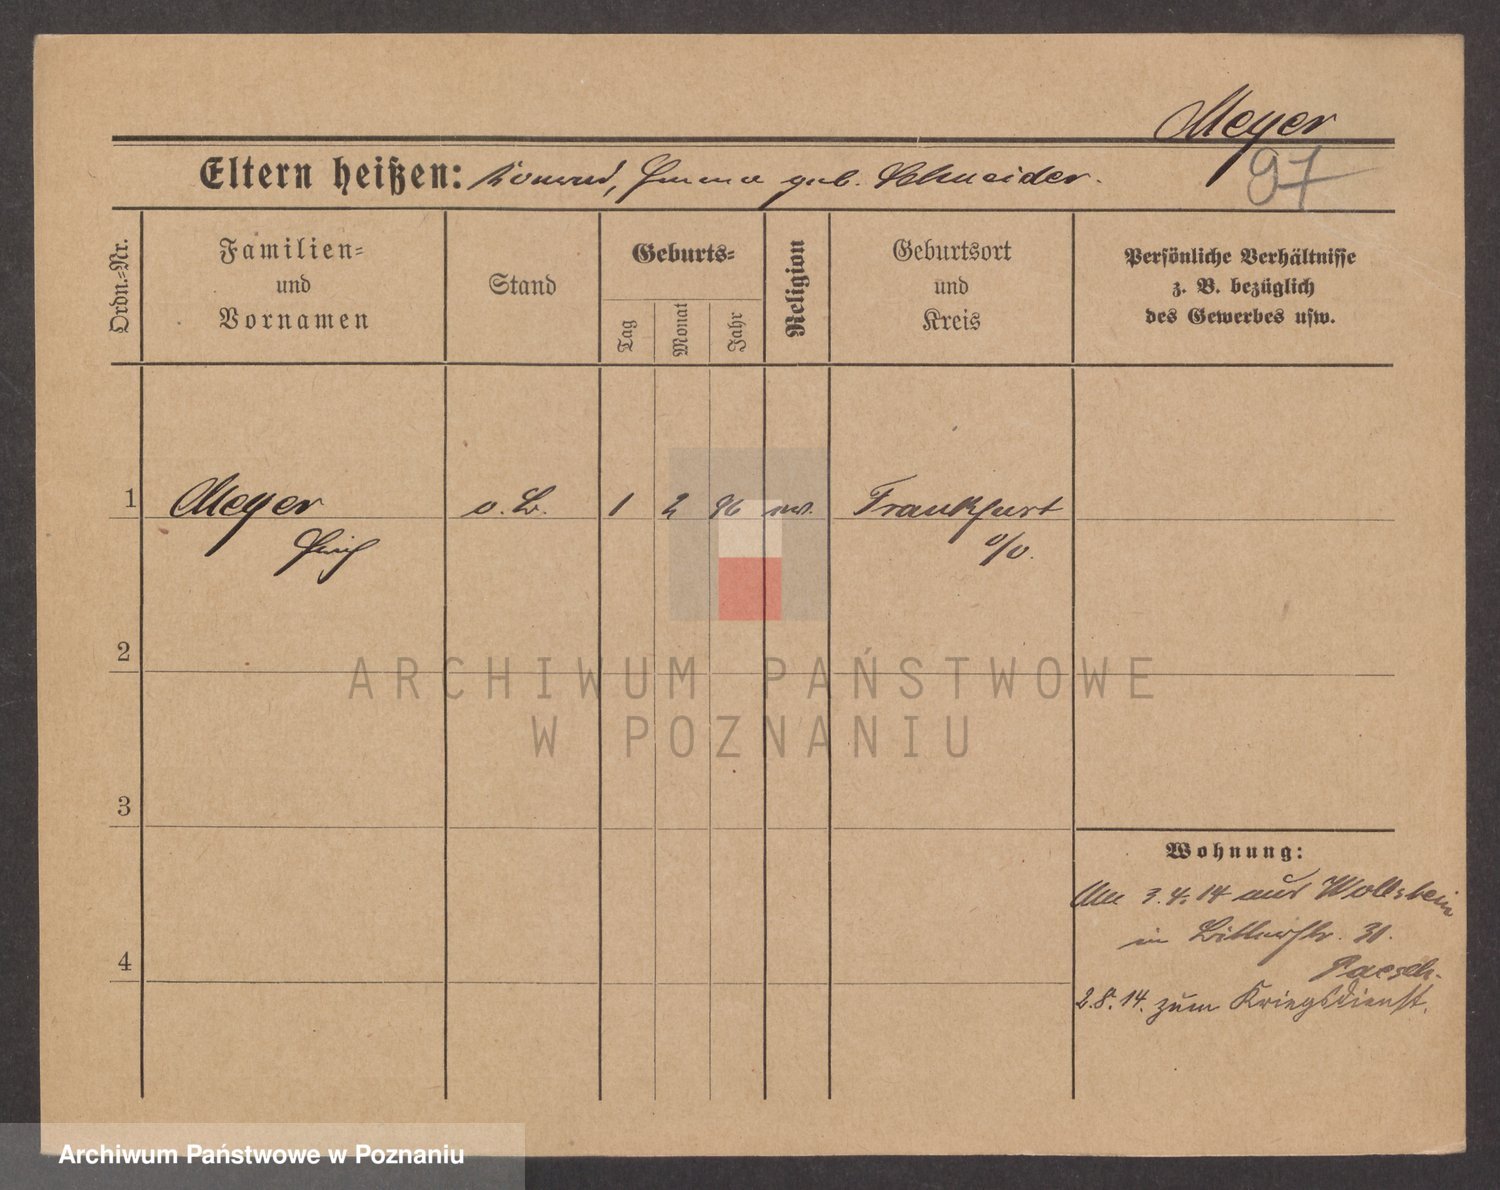 Meyer
97
Eltern heißen: Konrad, Emma geb. Schneider.
Ordn.=Nr.
Familien=
und
Vornamen
Stand
Geburts=
Tag
Monat
Jahr
Religion
Geburtsort
und
Kreis
Persönliche Verhältnisse
z. B. bezüglich
des Gewerbes usw.
1 Meyer 1 2 96 Frankfurt
Erich o/O.
2
3
4
Wohnung:
3.4.14 aus Wollstein
in 31.
Paesch.
2.8.14. zum Kriegsdienst.
ARCHIWUM PAŃSTWOWE
W POZNANIU
Archiwum Państwowe w Poznaniu